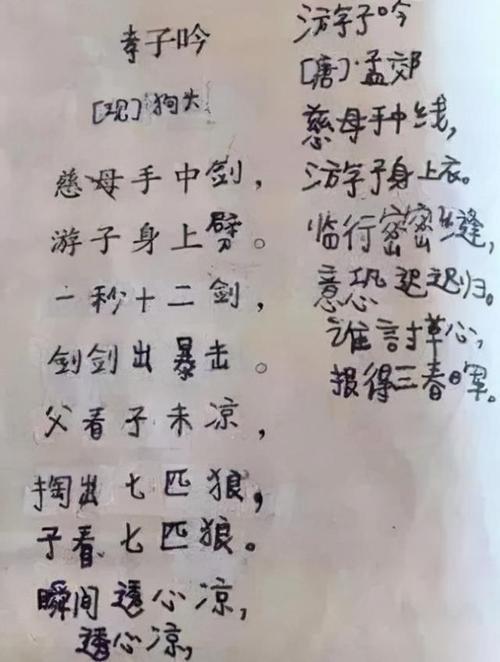 孝子吟
[现]狗头
慈母手中剑，
游子身上劈。
一秒十二剑，
剑剑出暴击。
父看子未凉，
掏出七匹狼，
子看七匹狼。
瞬间透心凉，
透心凉，
游子吟
[唐]·孟郊
慈母手中线，
游子身上衣。
临行密密缝，
意恐迟迟归。
谁討草心，
报得三春日军。